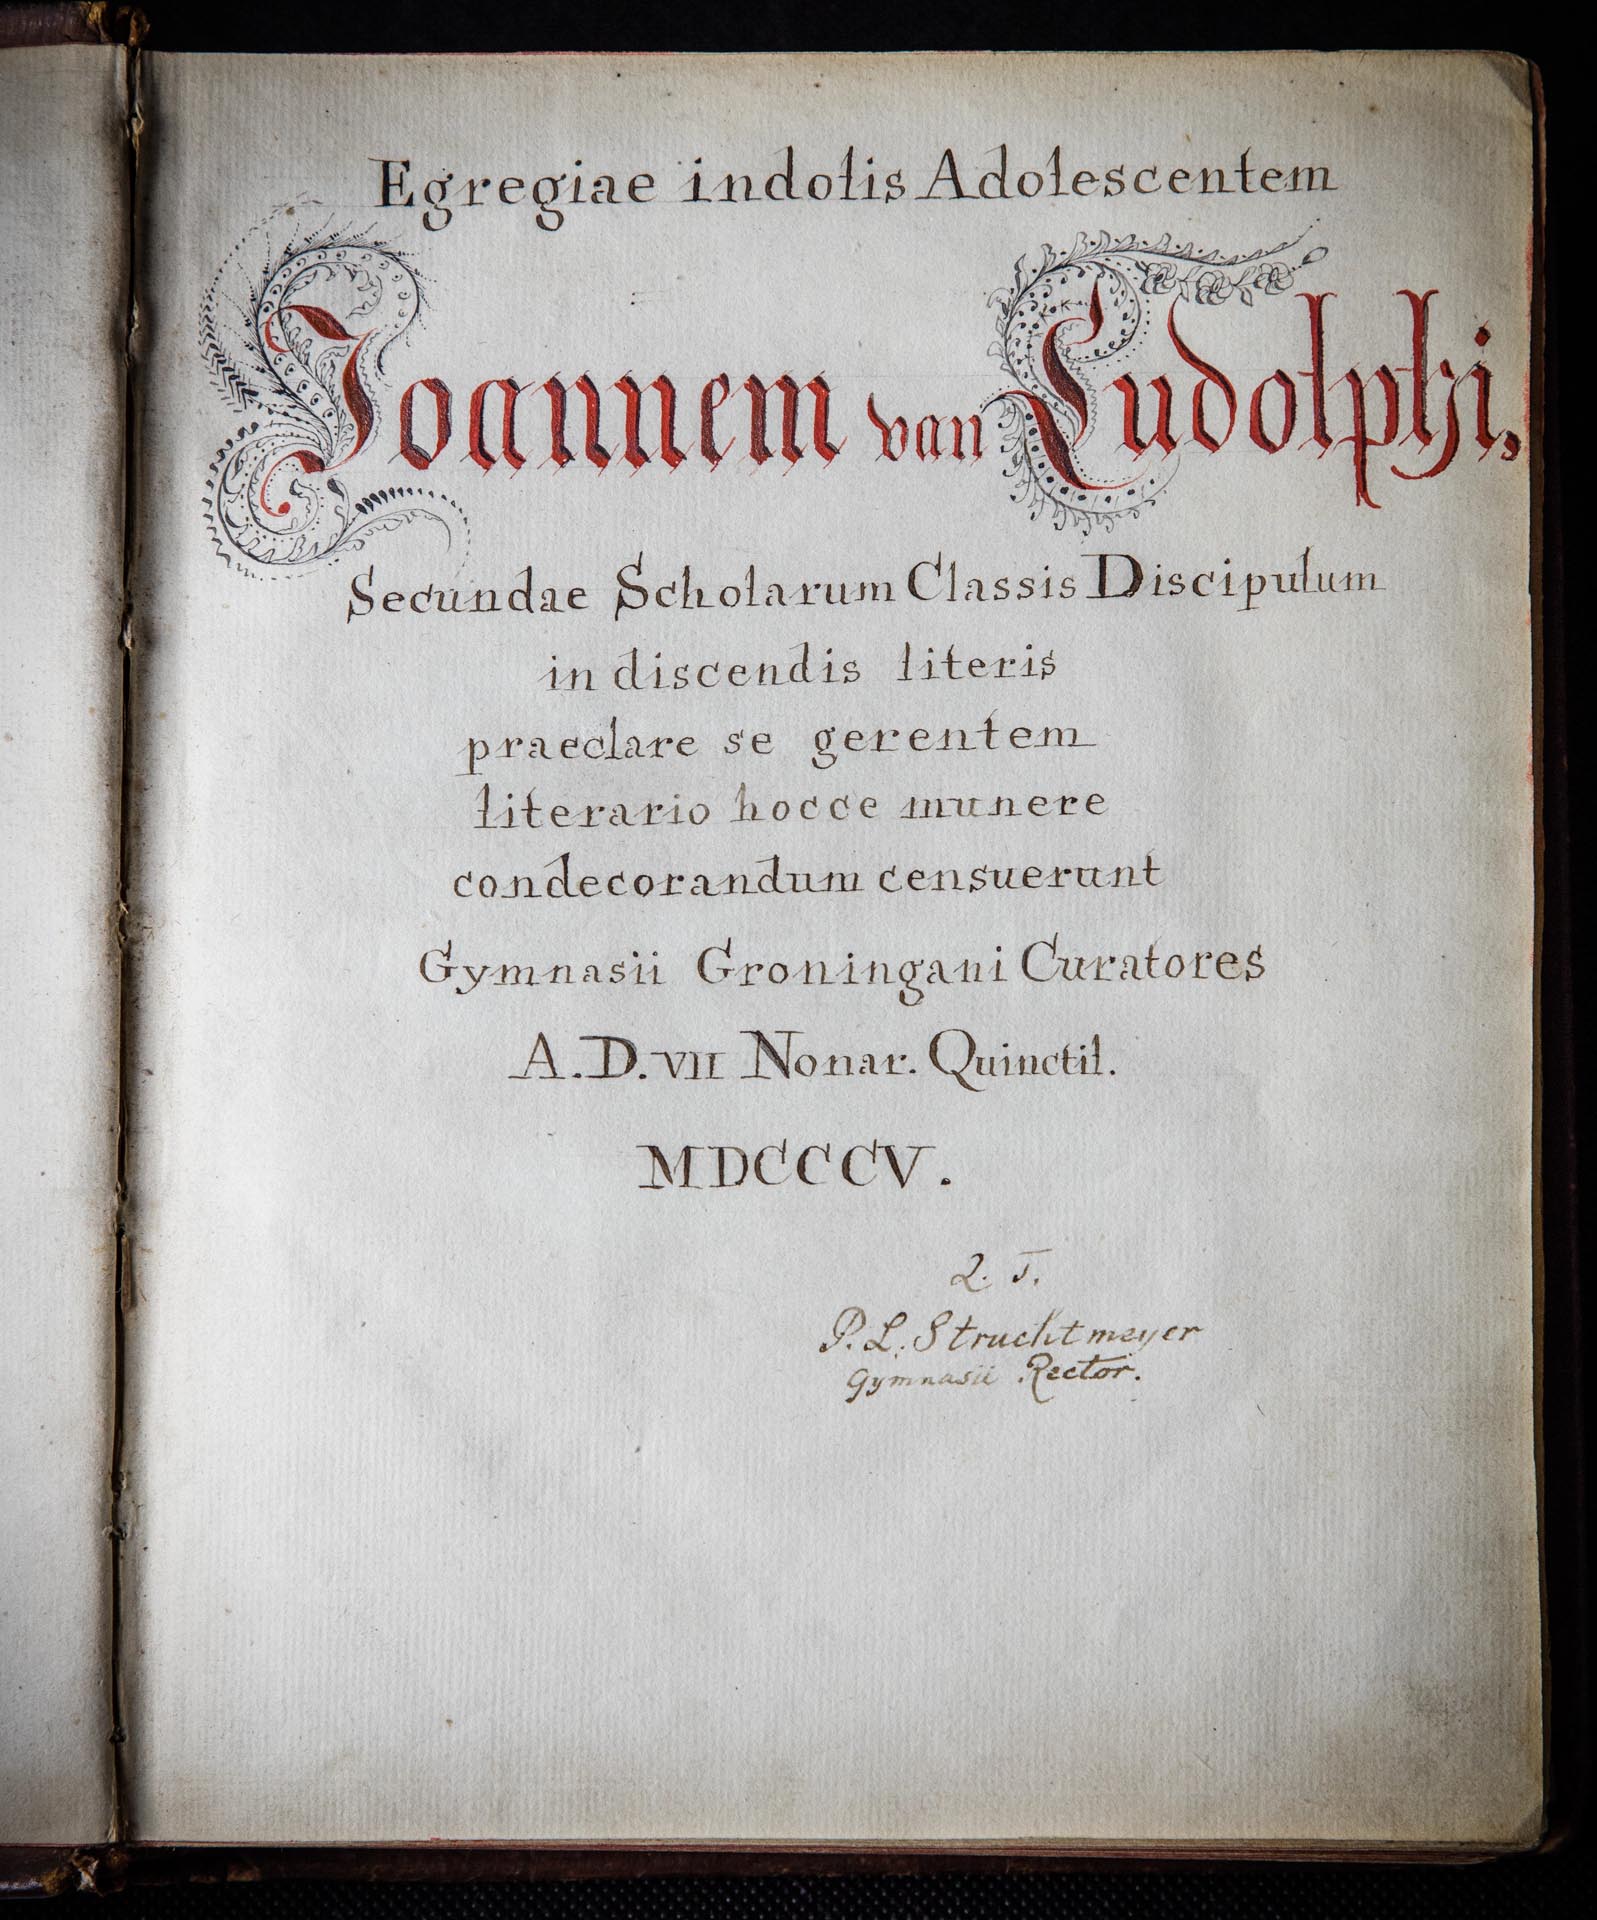 Egregiae indolis Adolescentem
Joannem van Ludolphi,
Secundae Scholarum Classis Discipulum
in discendis literis
praeclare se gerentem
literario hocce munere
condecorandum censuerunt
Gymnasii Groningani Curatores
A.D. VII Nonar. Quinctil.
MDCCCV.
Q. T.
P. L. Struchtmeyer
Gymnasii Rector.